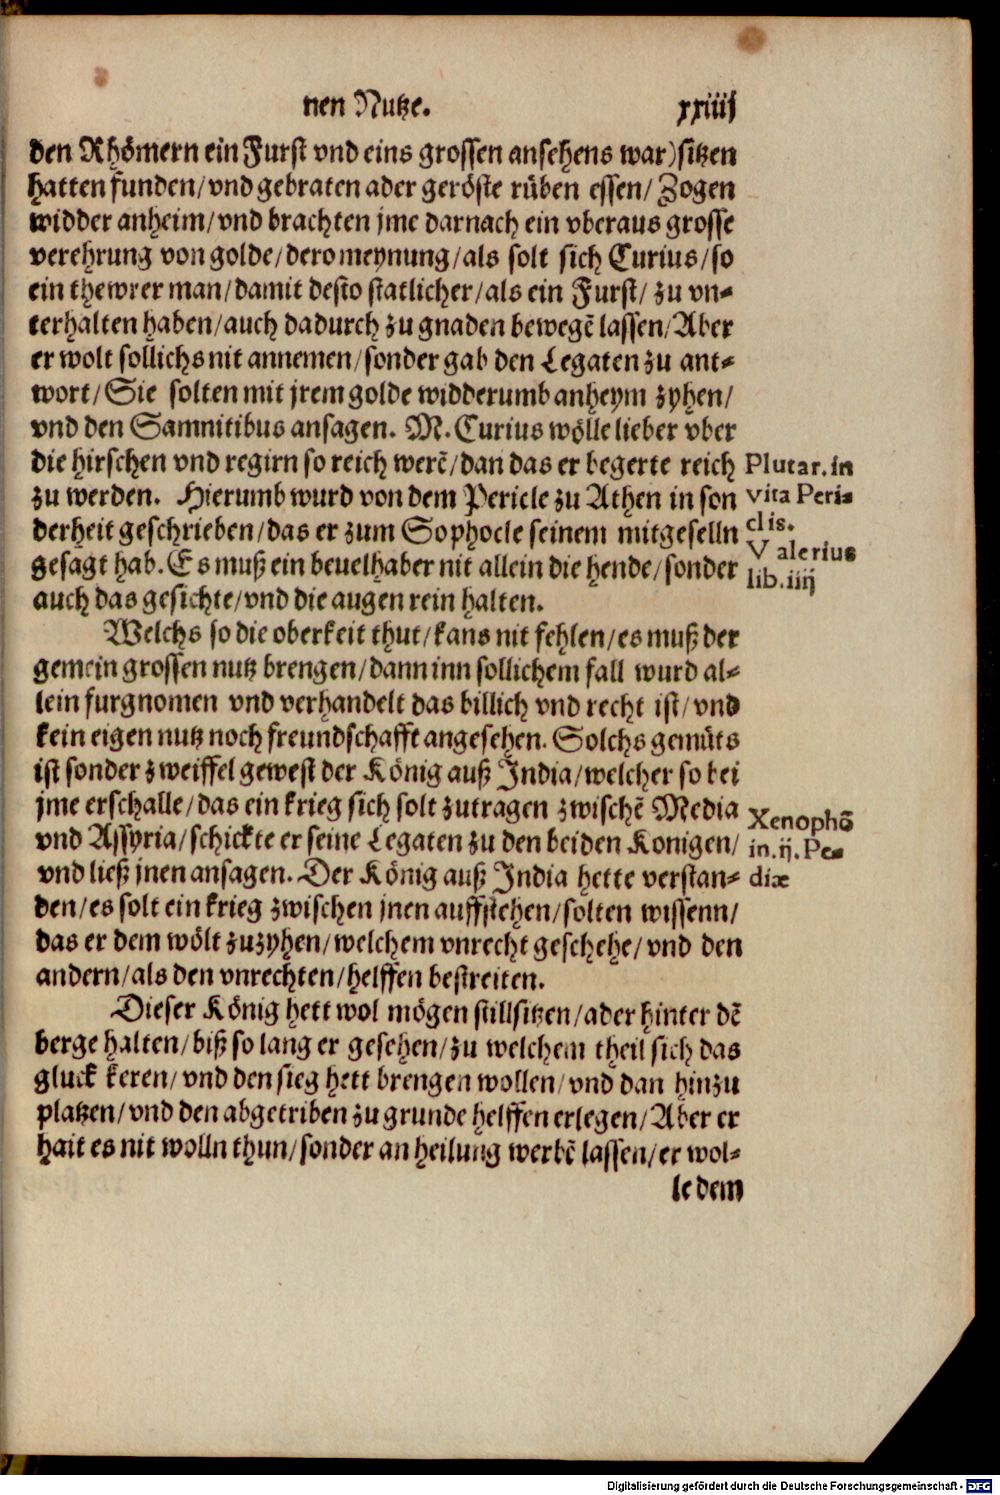 nen Nutze. xxiiij
den Rhömern ein Furst vnd eins grossen ansehens war) sitzen
hatten funden/ vnd gebraten ader geröste rüben essen/ Zogen
widder anheim/ vnd brachten jme darnach ein vberaus grosse
verehrung von golde/ dero meynung/ als solt sich Curius/ so
ein thewrer man/ damit desto statlicher/ als ein Furst/ zu vn-
terhalten haben/ auch dadurch zu gnaden bewegē lassen/ Aber
er wolt sollichs nit annemen/ sonder gab den Legaten zu ant-
wort/ Sie solten mit jrem golde widderumb anheym zyhen/
vnd den Samnitibus ansagen. M. Curius wölle lieber vber
die hirschen vnd regirn so reich werē/ dan das er begerte reich
zu werden. Hierumb wurd von dem Pericle zu Athen in son
derheit geschrieben/ das er zum Sophocle seinem mitgeselln
gesagt hab. Es muß ein beuelhaber nit allein die hende/ sonder
auch das gesichte/ vnd die augen rein halten.
Plutar. in
vita Peri-
clis.
Valerius
lib. iiij
Welchs so die oberkeit thut/ kans nit fehlen/ es muß der
gemein grossen nutz brengen/ dann inn sollichem fall wurd al-
lein furgnomen vnd verhandelt das billich vnd recht ist/ vnd
kein eigen nutz noch freundschafft angesehen. Solchs gemüts
ist sonder zweiffel gewest der König auß India/ welcher so bei
jme erschalle/ das ein krieg sich solt zutragen zwischē Media
vnd Assyria/ schickte er seine Legaten zu den beiden Konigen/
vnd ließ jnen ansagen. Der König auß India hette verstan-
den/ es solt ein krieg zwischen jnen auffstehen/ solten wissenn/
das er dem wölt zuzyhen/ welchem vnrecht geschehe/ vnd den
andern/ als den vnrechten/ helffen bestreiten.
Xenophō
in. ij. Pe-
diæ
Dieser König hett wol mögen stillsitzen/ ader hinter dē
berge halten/ biß so lang er gesehen/ zu welchem theil sich das
gluck keren/ vnd den sieg hett brengen wollen/ vnd dan hinzu
platzen/ vnd den abgetriben zu grunde helffen erlegen/ Aber er
hait es nit wolln thun/ sonder an heilung werbē lassen/ er wol-
le dem
Digitalisierung gefördert durch die Deutsche Forschungsgemeinschaft - DFG